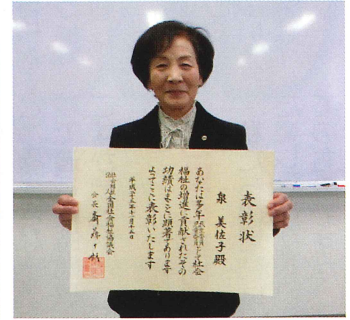 表彰状
泉 美佐子 殿
あなたは多年
として社会
福祉の増進に貢献されたその
功績はまことに顕著であります
よってここに表彰いたします
平成二十三年十二月十五日
全国社会福祉協議会
会長 斎藤十朗